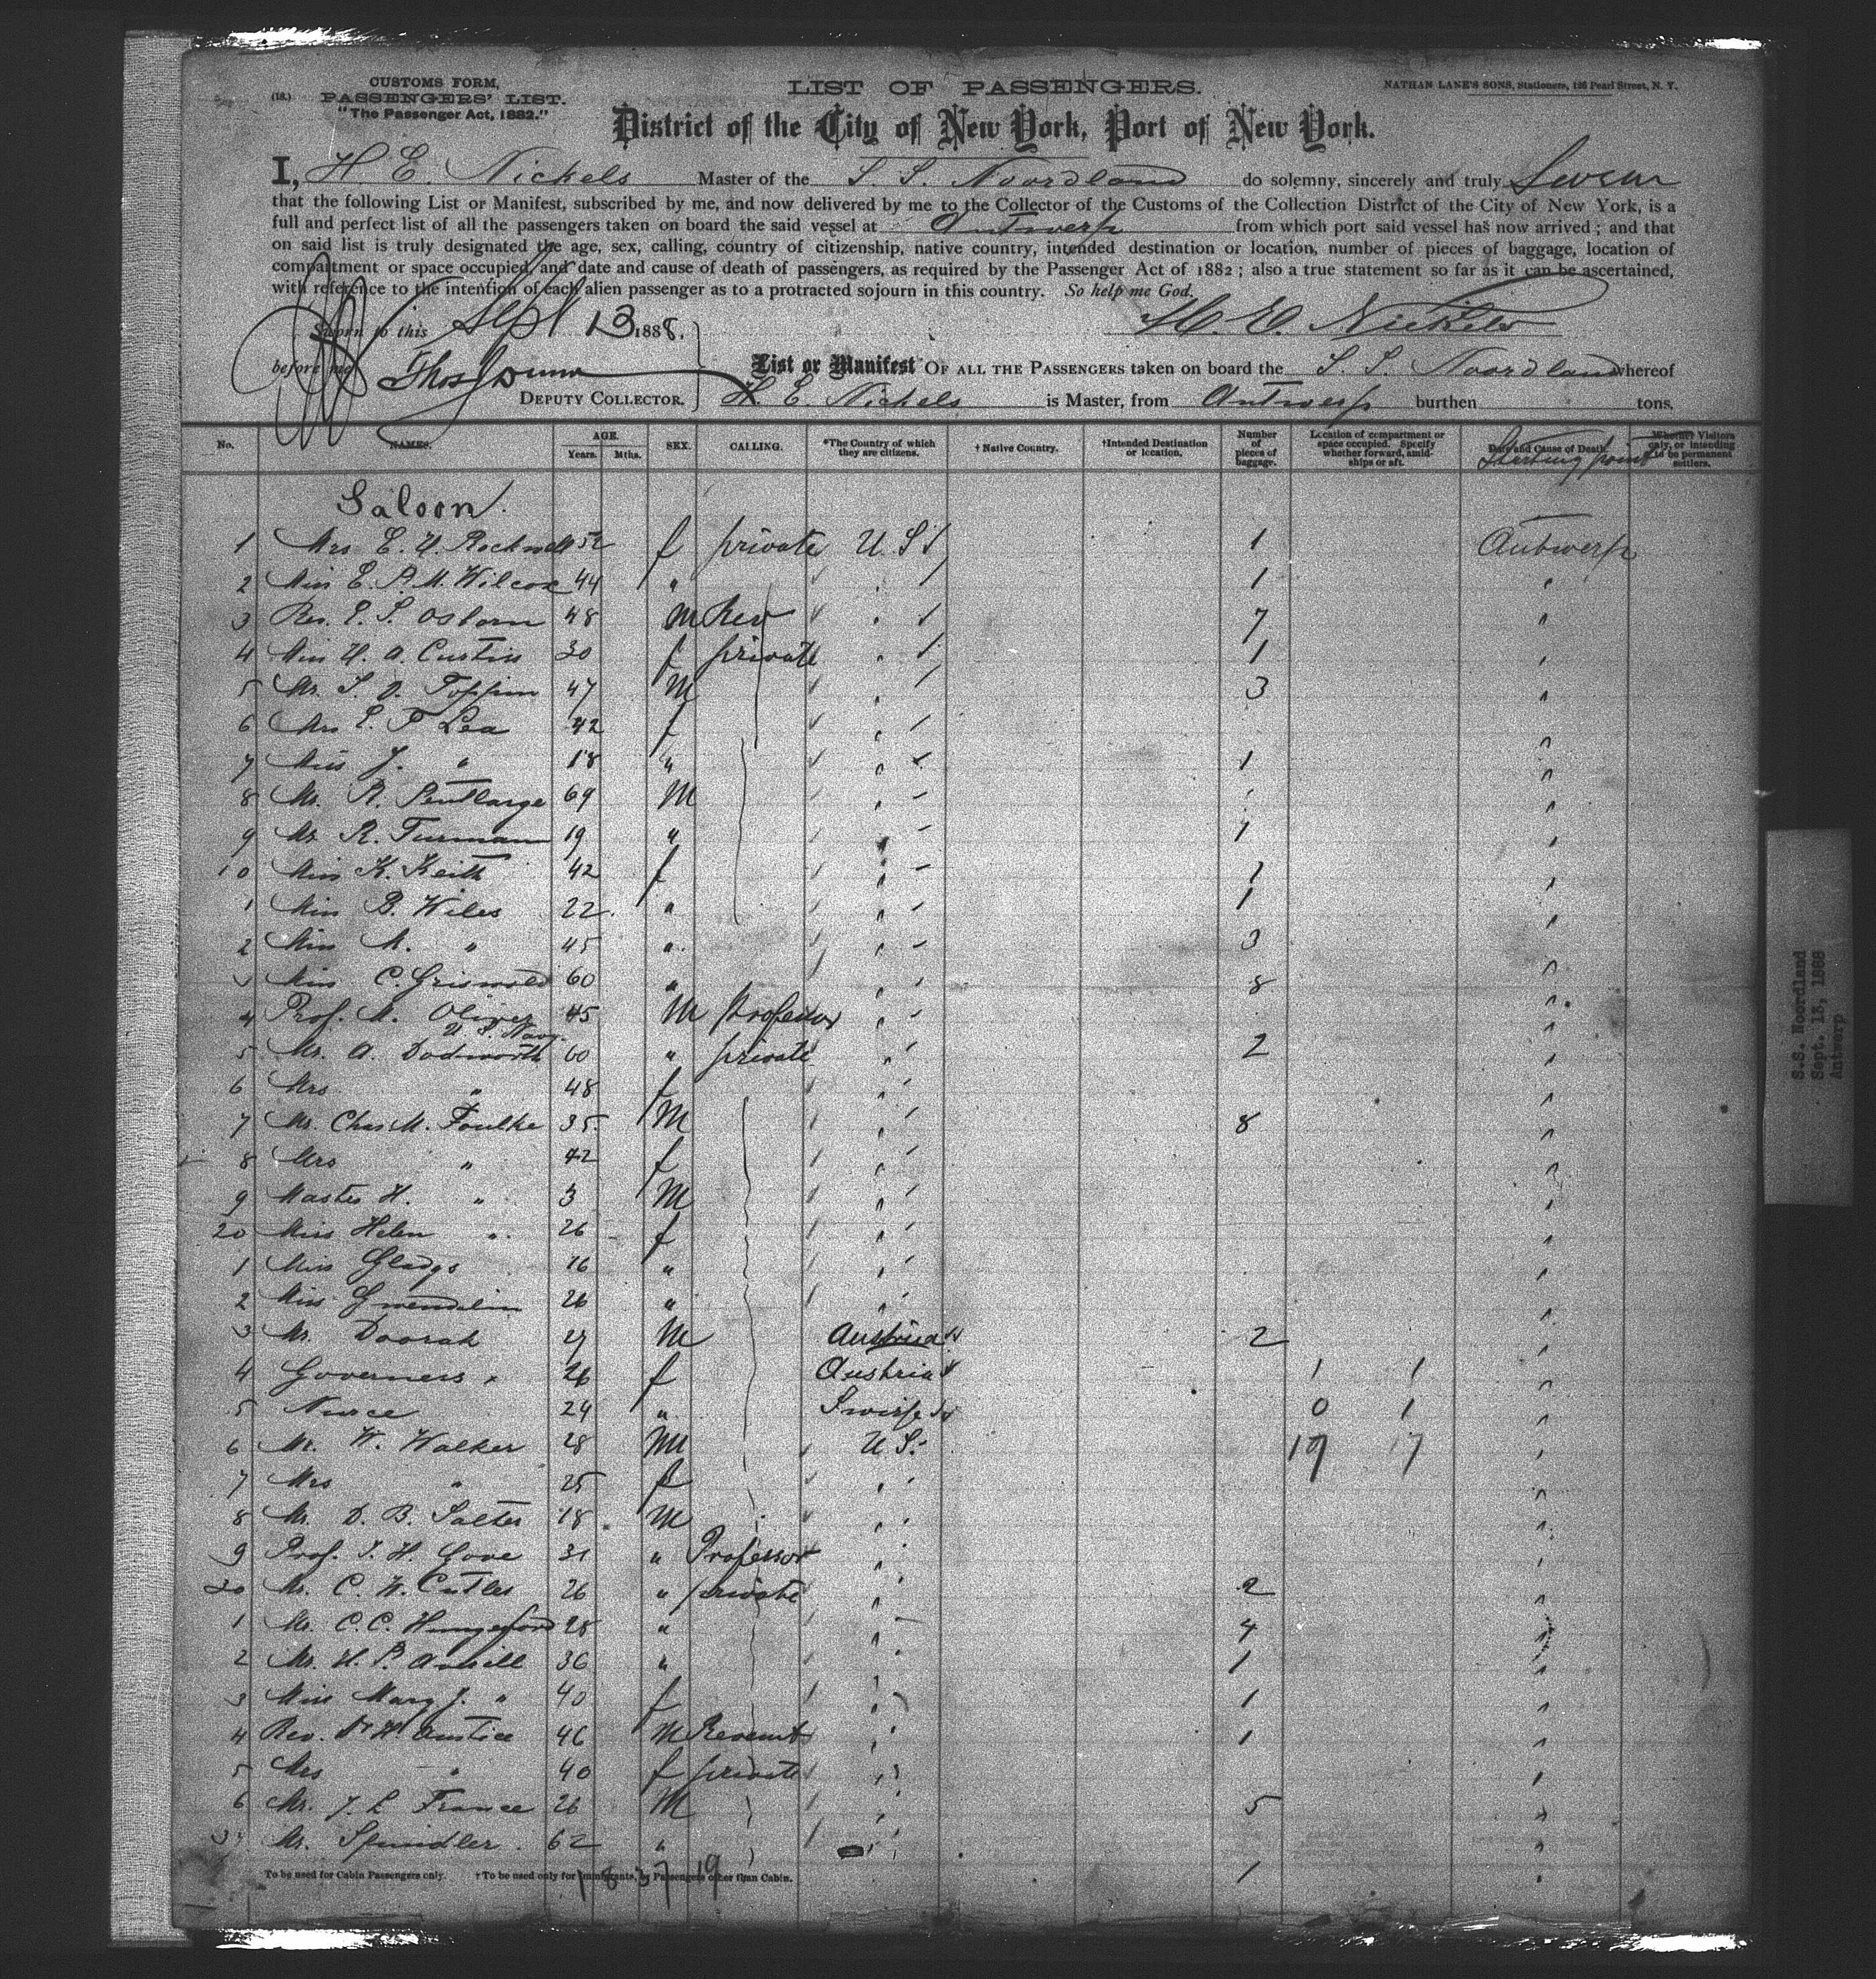 CUSTOMS FORM,
(18.) PASSENGERS' LIST.
"The Passenger Act, 1882."
LIST OF PASSENGERS.
NATHAN LANE'S SONS, Stationers, 126 Pearl Street, N. Y.
District of the City of New York, Port of New York.
I, H E. Nickels Master of the S. S. Noordland do solemny, sincerely and truly Swear
that the following List or Manifest, subscribed by me, and now delivered by me to the Collector of the Customs of the Collection District of the City of New York, is a
full and perfect list of all the passengers taken on board the said vessel at Antwerp from which port said vessel has now arrived ; and that
on said list is truly designated the age, sex, calling, country of citizenship, native country, intended destination or location, number of pieces of baggage, location of
compartment or space occupied, and date and cause of death of passengers, as required by the Passenger Act of 1882 ; also a true statement so far as it can be ascertained,
with reference to the intention of each alien passenger as to a protracted sojourn in this country. So help me God.
Sworn to this Sept 13 1888. H. E. Nickels
before me Thos Dunn
DEPUTY COLLECTOR.
List or Manifest OF ALL THE PASSENGERS taken on board the S. S. Noordland whereof
H. E. Nickels is Master, from Antwerp burthen tons.
No. NAMES. AGE. Years. Mths. SEX. CALLING. *The Country of which they are citizens. † Native Country. †Intended Destination or location. Number of pieces of baggage. Location of compartment or space occupied. Specify whether forward, amidships or aft. Date and Cause of Death. Starting point Whether Visitors only, or intending to be permanent settlers.
Saloon.
1 Mrs E. H. Rockwell 52 f private U. S 1 Antwerp
2 Miss E. P. M. Wilcox 44 " 1 "
3 Rev. E. S. Osborn 48 M Rev 7 "
4 Miss H. A. Curtiss 30 f private 1 "
5 Mr. S. D. 47 M 3 "
6 Mrs E. P Lea 42 f "
7 Miss J. " 18 " 1 "
8 Mr. R. Pentlarge 69 M "
9 Mr R. Furman 19 " 1 "
10 Miss K. Keith 42 f 1 "
1 Miss B. Wiles 22. " 1 "
2 Miss M. " 45 " 3 "
3 Miss C. Griswold 60 " 8 "
4 Prof. M. Oliver 45 M Professor "
U. S. Navy.
5 Mr. A. Dodworth 60 " private 2 "
6 Mrs " 48 f "
7 Mr. Chas M. Foulke 35. M 8 "
8 Mrs " 42 f "
9 Master H. " 3 M "
20 Miss Helen " 26 f "
1 Miss Gladys 16 " "
2 Miss Gwendolin 26 " "
3 Mr. Dvorak 27 M Austria 2 "
4 Governess 26 f Austria 1 1 "
5 Nurce 24 " 0 1 "
6 Mr. W. Walker 28 M U. S. 19 17 "
7 Mrs " 25 f "
8 Mr. D. B. Salter 18 M "
9 Prof. J. H. Gore 31 " Professor "
30 Mr. C. W. Cutler 26 " private 2 "
1 Mr. C. C. Hungerford 28 " 4 "
2 Mr. H. P. Averill 36 " 1 "
3 Miss Mary J. " 40 f 1 "
4 Rev. Dr H. Anstice 46 M 1 "
5 Mrs " 40 f private "
6 Mr. J. L France 26 M 5 "
Mr. Spindler. 62 " 1 "
To be used for Cabin Passengers only. † To be used only for Immigrants, or Passengers other than Cabin.
S.S. Noordland
Sept. 13, 1888
Antwerp